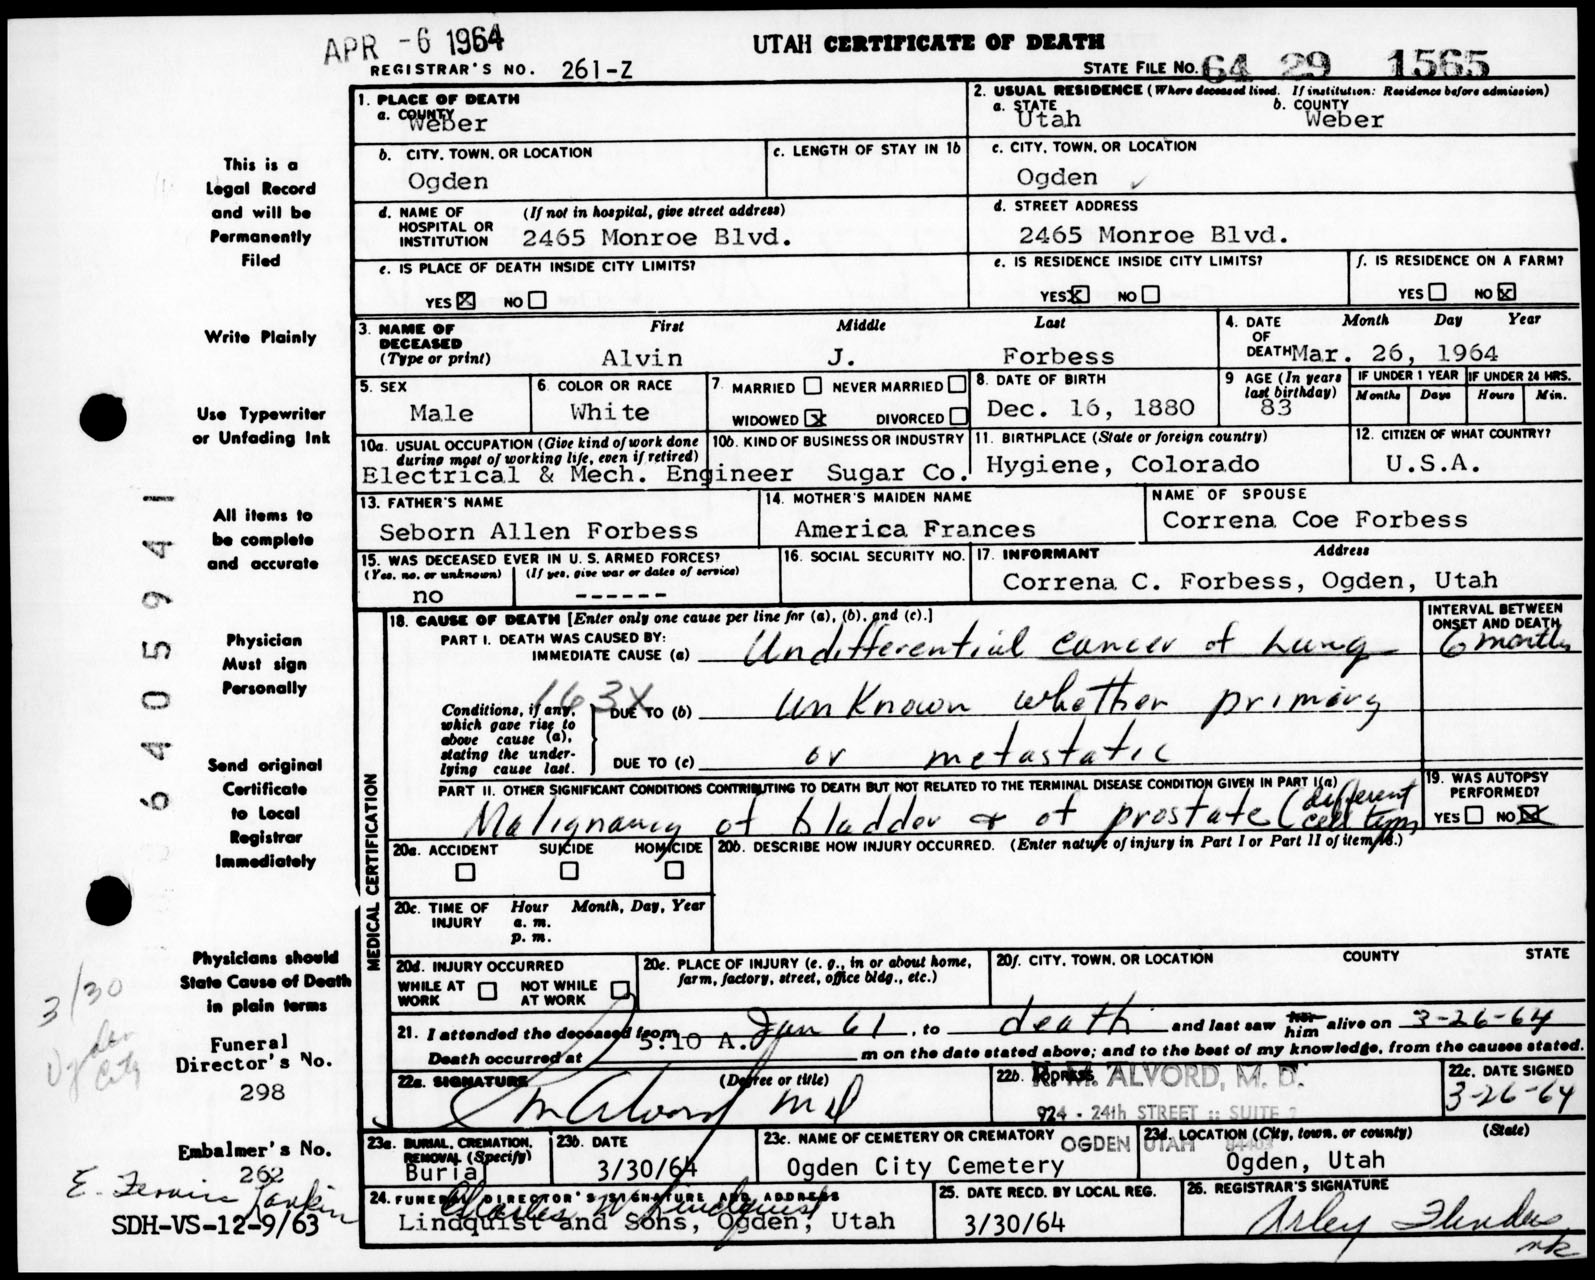 APR - 6 1964
UTAH CERTIFICATE OF DEATH
REGISTRAR'S NO. 261-Z
STATE FILE NO. 64 29 1565
This is a
Legal Record
and will be
Permanently
Filed
Write Plainly
Use Typewriter
or Unfading Ink
All items to
be complete
and accurate
Physician
Must sign
Personally
Send original
Certificate
to Local
Registrar
Immediately
Physicians should
State Cause of Death
in plain terms
3/30
Ogden
City
Funeral
Director's No.
298
Embalmer's No.
262
E.
SDH-VS-12-9/63
6405941
1. PLACE OF DEATH
a. COUNTY
Weber
2. USUAL RESIDENCE (Where deceased lived. If institution: Residence before admission)
a. STATE b. COUNTY
Utah Weber
b. CITY, TOWN, OR LOCATION
Ogden
c. LENGTH OF STAY IN 1b
c. CITY, TOWN, OR LOCATION
Ogden ✓
d. NAME OF (If not in hospital, give street address)
HOSPITAL OR
INSTITUTION 2465 Monroe Blvd.
d. STREET ADDRESS
2465 Monroe Blvd.
e. IS PLACE OF DEATH INSIDE CITY LIMITS?
YES ☒ NO ☐
e. IS RESIDENCE INSIDE CITY LIMITS?
YES ☒ NO ☐
f. IS RESIDENCE ON A FARM?
YES ☐ NO ☒
3. NAME OF First Middle Last
DECEASED
(Type or print) Alvin J. Forbess
4. DATE Month Day Year
OF
DEATH Mar. 26, 1964
5. SEX
Male
6. COLOR OR RACE
White
7. MARRIED ☐ NEVER MARRIED ☐
WIDOWED ☒ DIVORCED ☐
8. DATE OF BIRTH
Dec. 16, 1880
9 AGE (In years
last birthday)
83
IF UNDER 1 YEAR IF UNDER 24 HRS.
Months Days Hours Min.
10a. USUAL OCCUPATION (Give kind of work done
during most of working life, even if retired)
Electrical & Mech. Engineer
10b. KIND OF BUSINESS OR INDUSTRY
Sugar Co.
11. BIRTHPLACE (State or foreign country)
Hygiene, Colorado
12. CITIZEN OF WHAT COUNTRY?
U.S.A.
13. FATHER'S NAME
Seborn Allen Forbess
14. MOTHER'S MAIDEN NAME
America Frances
NAME OF SPOUSE
Correna Coe Forbess
15. WAS DECEASED EVER IN U. S. ARMED FORCES?
(Yes, no. or unknown) (If yes, give war or dates of service)
no ------
16. SOCIAL SECURITY NO.
17. INFORMANT Address
Correna C. Forbess, Ogden, Utah
MEDICAL CERTIFICATION
18. CAUSE OF DEATH [Enter only one cause per line for (a), (b), and (c).]
INTERVAL BETWEEN
ONSET AND DEATH
PART I. DEATH WAS CAUSED BY:
IMMEDIATE CAUSE (a) Undifferential cancer of Lung 6 months
163X
Conditions, if any,
which gave rise to
above cause (a),
stating the under-
lying cause last.
DUE TO (b) unKnown whether primary
DUE TO (c) or metastatic
PART II. OTHER SIGNIFICANT CONDITIONS CONTRIBUTING TO DEATH BUT NOT RELATED TO THE TERMINAL DISEASE CONDITION GIVEN IN PART I(a)
Malignancy of bladder & of prostate (different
cell types)
19. WAS AUTOPSY
PERFORMED?
YES ☐ NO ☒
20a. ACCIDENT SUICIDE HOMICIDE
☐ ☐ ☐
20b. DESCRIBE HOW INJURY OCCURRED. (Enter nature of injury in Part I or Part II of item 18.)
20c. TIME OF Hour Month, Day, Year
INJURY a. m.
p. m.
20d. INJURY OCCURRED
WHILE AT ☐ NOT WHILE ☐
WORK AT WORK
20e. PLACE OF INJURY (e. g., in or about home,
farm, factory, street, office bldg., etc.)
20f. CITY, TOWN, OR LOCATION COUNTY STATE
21. I attended the deceased from Jan 61, to death and last saw her him alive on 3-26-64
Death occurred at 5:10 A. m on the date stated above; and to the best of my knowledge, from the causes stated.
22a. SIGNATURE (Degree or title)
RM Alvord MD
22b. ADDRESS
R. M. ALVORD, M. D.
924 - 24th STREET :: SUITE
OGDEN UTAH
22c. DATE SIGNED
3-26-64
23a. BURIAL, CREMATION,
REMOVAL (Specify)
Burial
23b. DATE
3/30/64
23c. NAME OF CEMETERY OR CREMATORY
Ogden City Cemetery
23d. LOCATION (City, town, or county) (State)
Ogden, Utah
24. FUNERAL DIRECTOR'S SIGNATURE AND ADDRESS
Charles W Lindquist
Lindquist and Sons, Ogden, Utah
25. DATE RECD. BY LOCAL REG.
3/30/64
26. REGISTRAR'S SIGNATURE
Arley Flinders
nk